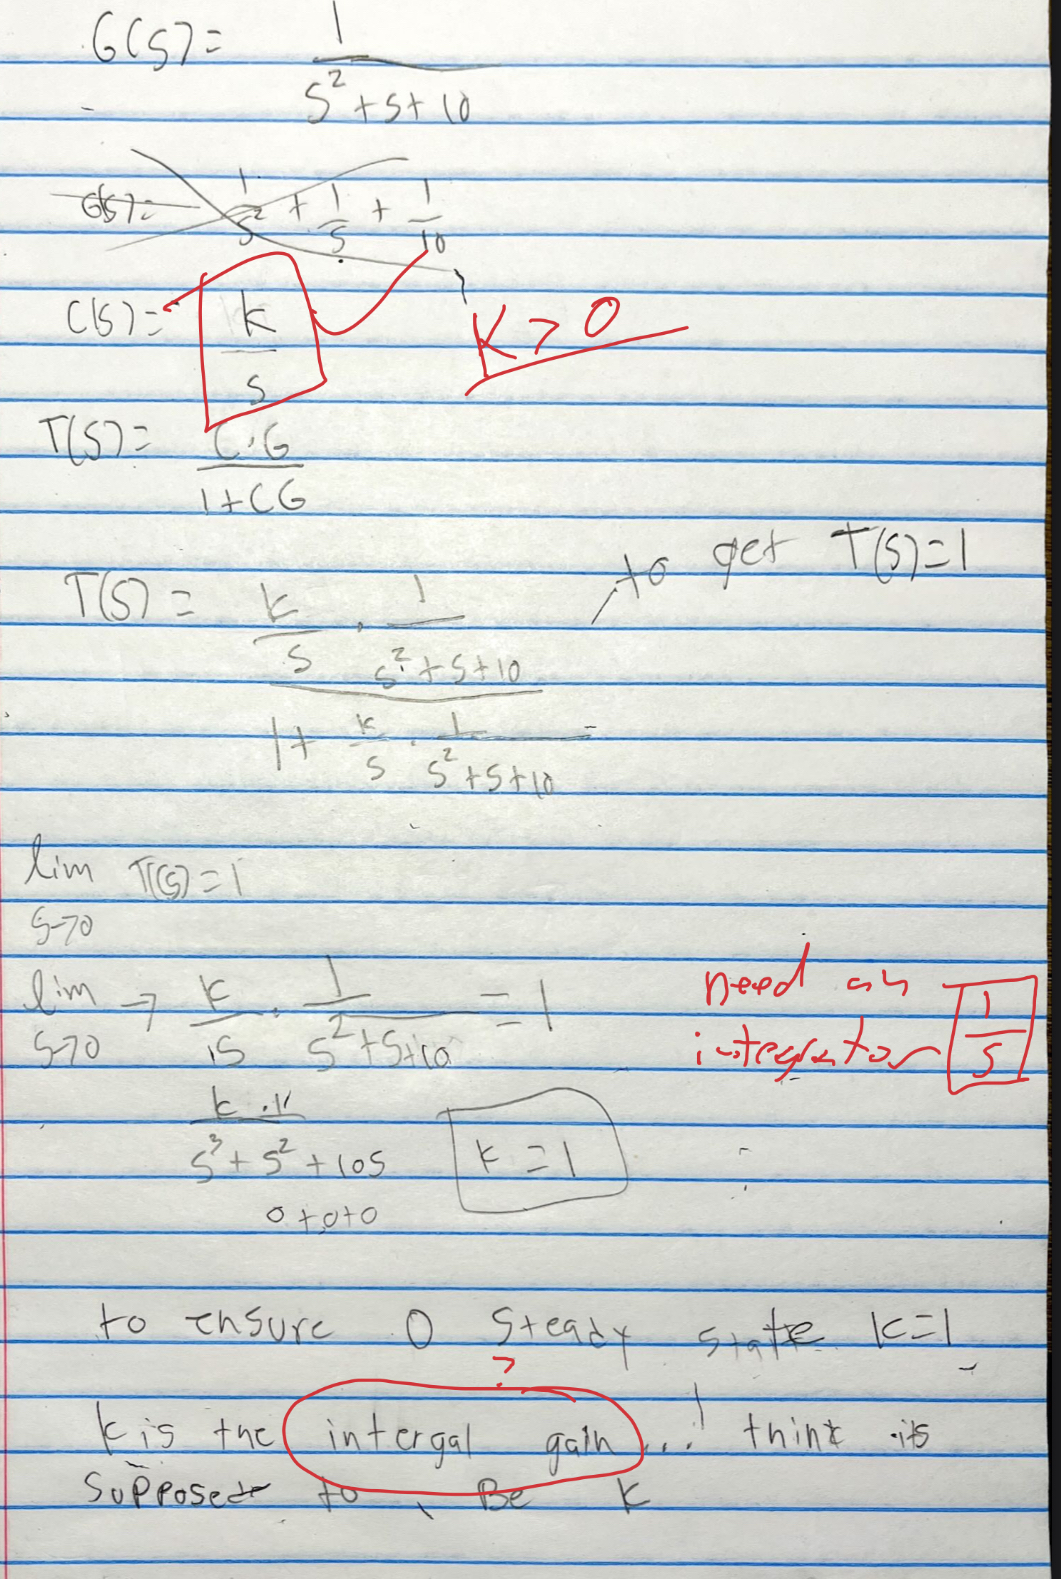 G(s) = 1 / s² + s + 10
G(s) = 1/s² + 1/s + 1/10
C(s) = k/s
K > 0
T(s) = C·G / 1+CG
to get T(s)=1
T(s) = k/s · 1/s²+s+10
1 + k/s · 1/s²+s+10 =
lim T(s) = 1
s→0
lim → k/s · 1/s²+s+10 = 1
s→0
need an
integrator 1/s
k · 1
s³ + s² + 10s
k = 1
0+0+0
to ensure 0 steady state k=1
?
k is the intergal gain ... I think its
supposed to Be k